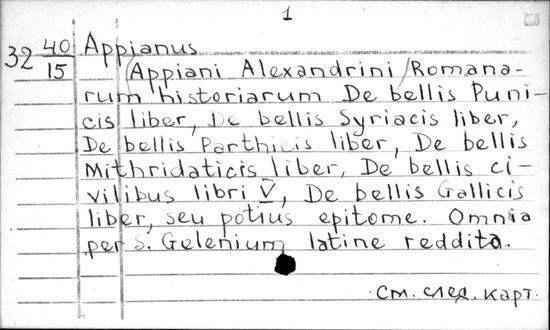 1
32 40/15 Appianus
Appiani Alexandrini Romana-
rum historiarum De bellis Puni-
cis liber, De bellis Syriacis liber,
De bellis Parthicis liber, De bellis
Mithridaticis liber, De bellis ci-
vilibus libri V, De bellis Gallicis
liber, seu potius epitome. Omnia
per S. Gelenium latine reddita.
См. след. карт.